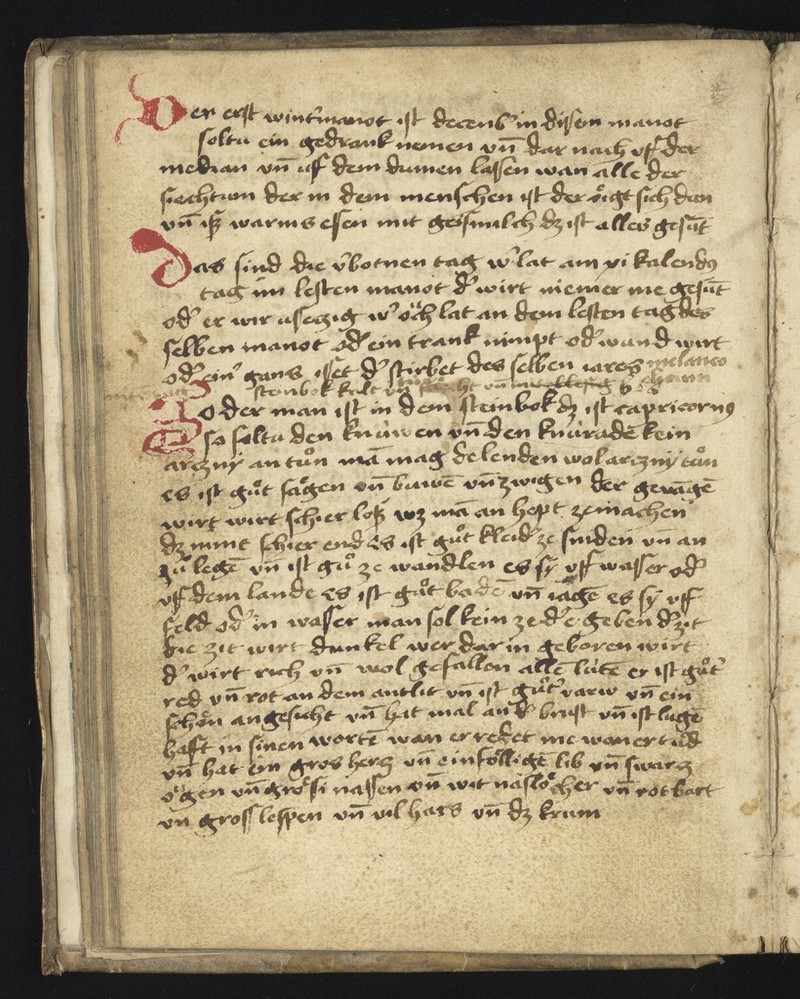 Der erst wintmanot ist decenb' in disem manot
soltu ein gedrank nemen vn̄ dar nach vff der
median vn̄ uff dem dumen lassen wan alle der
siechtum der in dem menschen ist der oͤigt sich dan
vn̄ iſz warms essen mit geismilch dz ist alles gesūt
Das sind die v'botnen tag w' lat am xi kalendꝰ
tag im lesten manot d' wirt niemer me gesūt
od' er wir usetzig w' oͤch lat an dem lesten tag des
selben manot od' ein trank nimpt od' wund wirt
od' ein' gans isset d' stirbet des selben iares melanco
steinbok kalt vn̄
So der man ist in dem steinbok dz ist capricornꝰ
so soltu den knuwen vn̄ den knuradē kein
artzny an tuͦn mā mag de lenden wol artzny tuͦn
es ist guͦt sagen vn̄ buwē vn̄ zwigen der gevāgē
wirt wirt schier loſz wz mā an hept ze machen
dz nimt schier end es ist guͦt kleid' ze sniden vn̄ an
zuͦ legē vn̄ ist guͦ ze wandlen es sy vff wasser od'
vff dem lande es ist guͦt badē vn̄ iagē es sy vff
feld od' in wasser man sol kein ze d'e geben d' zit
die zit wirt dunkel wer dar in geboren wirt
d' wirt rich vn̄ wol gefallen allē lutē er ist guͦt'
red vn̄ rot an dem antlit vn̄ ist guͦt' varw vn̄ ein
schoͤn angesicht vn̄ hat mal an d' brust vn̄ ist lugē
haft in sinen wortē wan er redet me wan er tuͦd
vn̄ hat ein gros hertz vn̄ einfoͤlligē lib vn̄ swartz
oͤgen vn̄ groͤssi nassen vn̄ wit nasloͤcher vn̄ rot bart
vn̄ gross lefpen vn̄ vil hars vn̄ dz krum